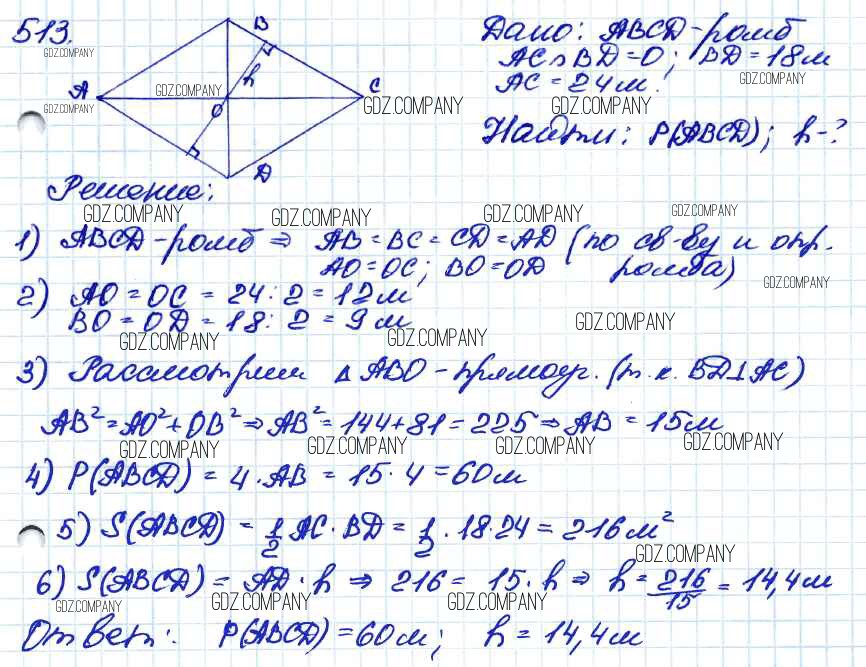 513.
GDZ.COMPANY
B
h
A
GDZ.COMPANY
O
C
GDZ.COMPANY
D
GDZ.COMPANY
Дано: ABCD-ромб
AC∩BD=O; BD=18м
AC=24м.
GDZ.COMPANY
GDZ.COMPANY
Найти: P(ABCD); h-?
Решение:
GDZ.COMPANY GDZ.COMPANY GDZ.COMPANY GDZ.COMPANY
1) ABCD-ромб ⇒ AB=BC=CD=AD (по св-ву и опр.
AO=OC; BO=OD ромба)
GDZ.COMPANY
2) AO=OC=24:2=12м
BO=OD=18:2=9м
GDZ.COMPANY GDZ.COMPANY GDZ.COMPANY
3) Рассмотрим △ABO-прямоуг. (т.к. BD⊥AC)
AB²=AO²+OB²⇒AB²=144+81=225⇒AB=15м
GDZ.COMPANY GDZ.COMPANY GDZ.COMPANY GDZ.COMPANY
4) P(ABCD)=4·AB=15·4=60м
5) S(ABCD)=1/2 AC·BD=1/2·18·24=216м²
GDZ.COMPANY
6) S(ABCD)=AD·h ⇒ 216=15·h ⇒ h=216/15=14,4м
GDZ.COMPANY GDZ.COMPANY GDZ.COMPANY
Ответ: P(ABCD)=60м; h=14,4м